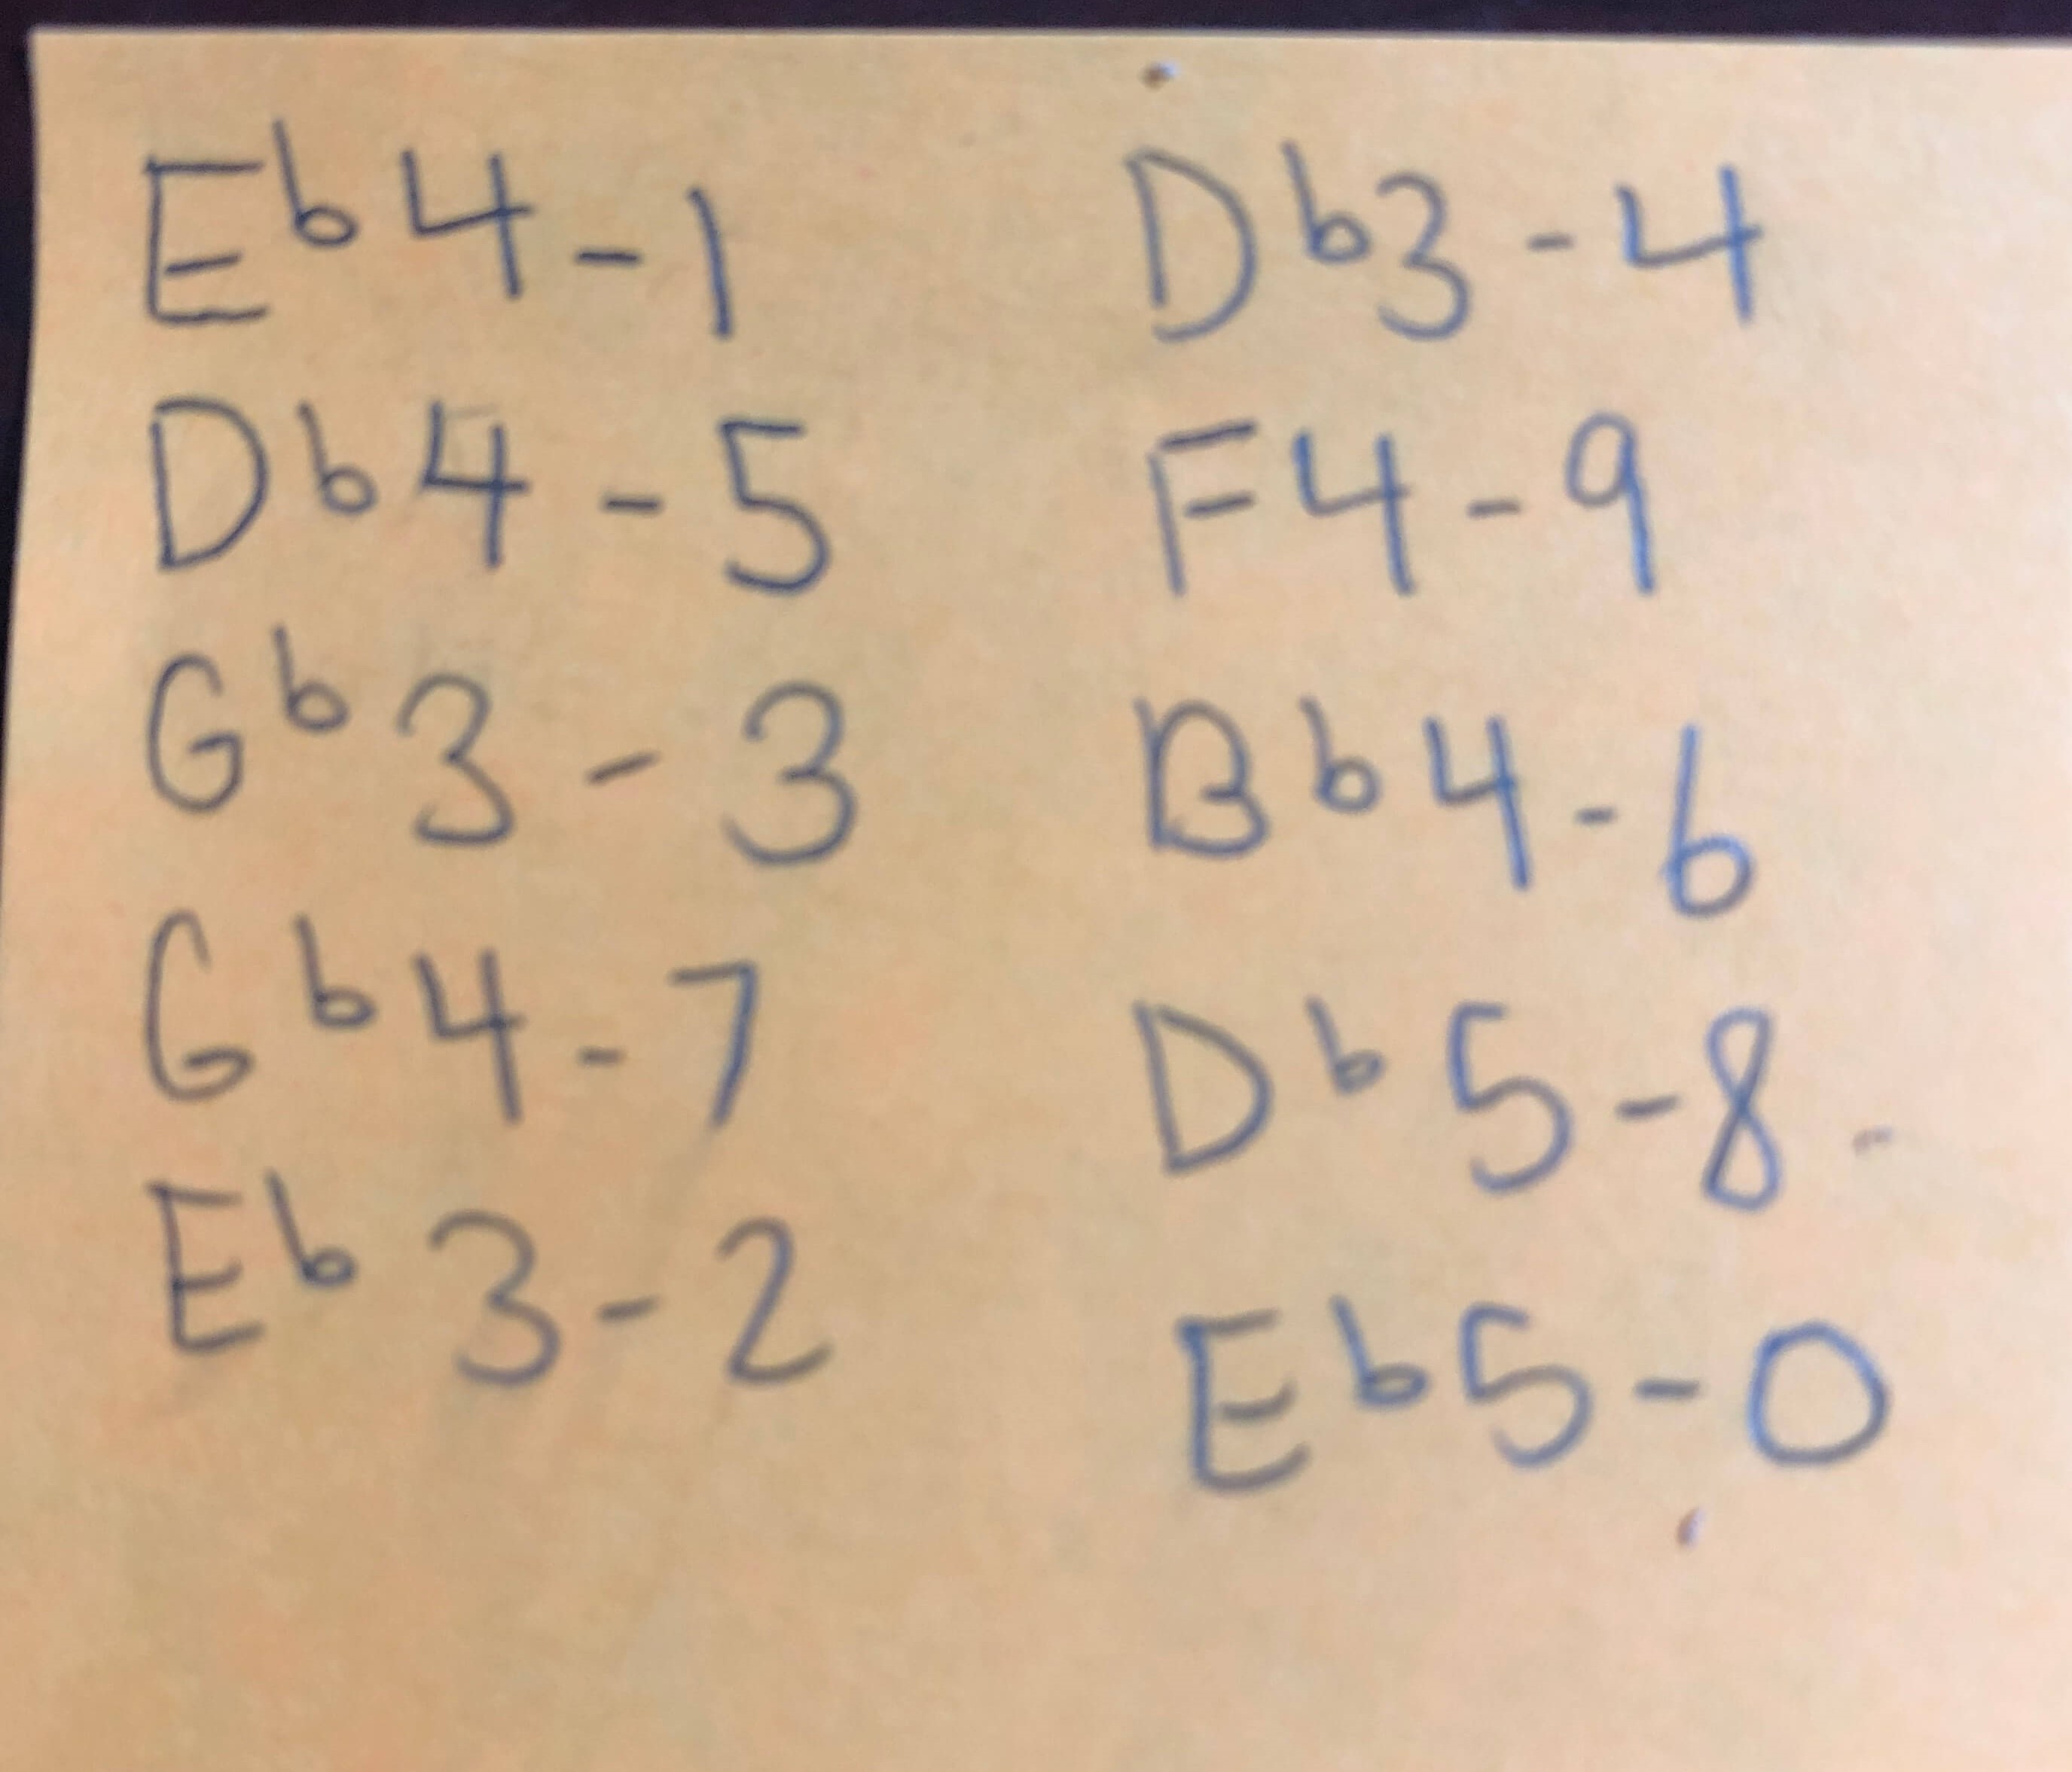 E♭4-1
D♭4-5
G♭3-3
G♭4-7
E♭3-2
D♭3-4
F4-9
B♭4-6
D♭5-8
E♭5-0